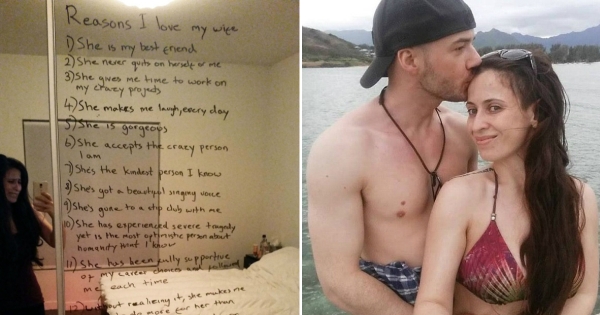 Reasons I love my wife
1) She is my best friend
2) She never quits on herself or me
3) She gives me time to work on
my crazy projects
4) She makes me laugh, every day
5) She is gorgeous
6) She accepts the crazy person
I am
7) She's the kindest person I know
8) She's got a beautiful singing voice
9) She's gone to a strip club with me
10) She has experienced severe tragedy
yet is the most optimistic person about
humanity that I know
11) She has been fully supportive
of my career choices and followed
me each time
12) Without realizing it, she makes me
do more for her than